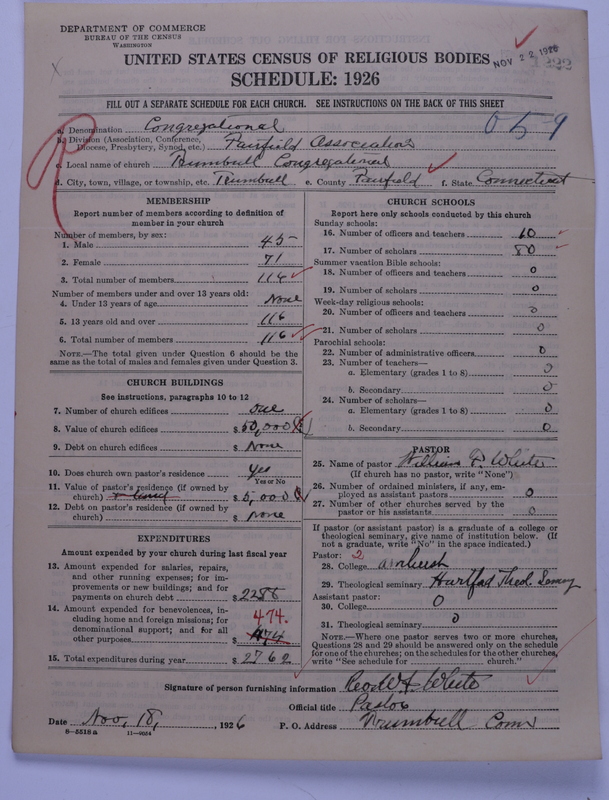 DEPARTMENT OF COMMERCE
BUREAU OF THE CENSUS
WASHINGTON
NOV 22 1926
UNITED STATES CENSUS OF RELIGIOUS BODIES
SCHEDULE: 1926
FILL OUT A SEPARATE SCHEDULE FOR EACH CHURCH. SEE INSTRUCTIONS ON THE BACK OF THIS SHEET
059
a. Denomination Congregational
b. Division (Association, Conference, Diocese, Presbytery, Synod, etc.) Fairfield Association
c. Local name of church Trumbull Congregational
d. City, town, village, or township, etc. Trumbull e. County Fairfield f. State Connecticut
MEMBERSHIP
Report number of members according to definition of
member in your church
Number of members, by sex:
1. Male 45
2. Female 71
3. Total number of members 116
Number of members under and over 13 years old:
4. Under 13 years of age None
5. 13 years old and over 116
6. Total number of members 116
NOTE.—The total given under Question 6 should be the
same as the total of males and females given under Question 3.
CHURCH BUILDINGS
See instructions, paragraphs 10 to 12
7. Number of church edifices one
8. Value of church edifices $50,000
9. Debt on church edifices $ None
10. Does church own pastor's residence Yes
Yes or No
11. Value of pastor's residence (if owned by
church) $5,000
12. Debt on pastor's residence (if owned by
church) $ None
EXPENDITURES
Amount expended by your church during last fiscal year
13. Amount expended for salaries, repairs,
and other running expenses; for im-
provements or new buildings; and for
payments on church debt $2288
14. Amount expended for benevolences, in-
cluding home and foreign missions; for
denominational support; and for all
other purposes $474
474.
15. Total expenditures during year $2762
CHURCH SCHOOLS
Report here only schools conducted by this church
Sunday schools:
16. Number of officers and teachers 10
17. Number of scholars 80
Summer vacation Bible schools:
18. Number of officers and teachers 0
19. Number of scholars 0
Week-day religious schools:
20. Number of officers and teachers 0
21. Number of scholars 0
Parochial schools:
22. Number of administrative officers 0
23. Number of teachers—
a. Elementary (grades 1 to 8) 0
b. Secondary 0
24. Number of scholars—
a. Elementary (grades 1 to 8) 0
b. Secondary 0
PASTOR
25. Name of pastor William F. White
(If church has no pastor, write "None")
26. Number of ordained ministers, if any, em-
ployed as assistant pastors 0
27. Number of other churches served by the
pastor or his assistants 0
If pastor (or assistant pastor) is a graduate of a college or
theological seminary, give name of institution below. (If
not a graduate, write "No" in the space indicated.)
Pastor: 2
28. College Amherst
29. Theological seminary Hartford Theol. Semy
Assistant pastor:
30. College 0
31. Theological seminary 0
NOTE.—Where one pastor serves two or more churches,
Questions 28 and 29 should be answered only on the schedule
for one of the churches; on the schedules for the other churches,
write "See schedule for church."
Signature of person furnishing information White
Official title Pastor
Date Nov, 18, 1926 P. O. Address Trumbull Conn
8-5518a 11-9054